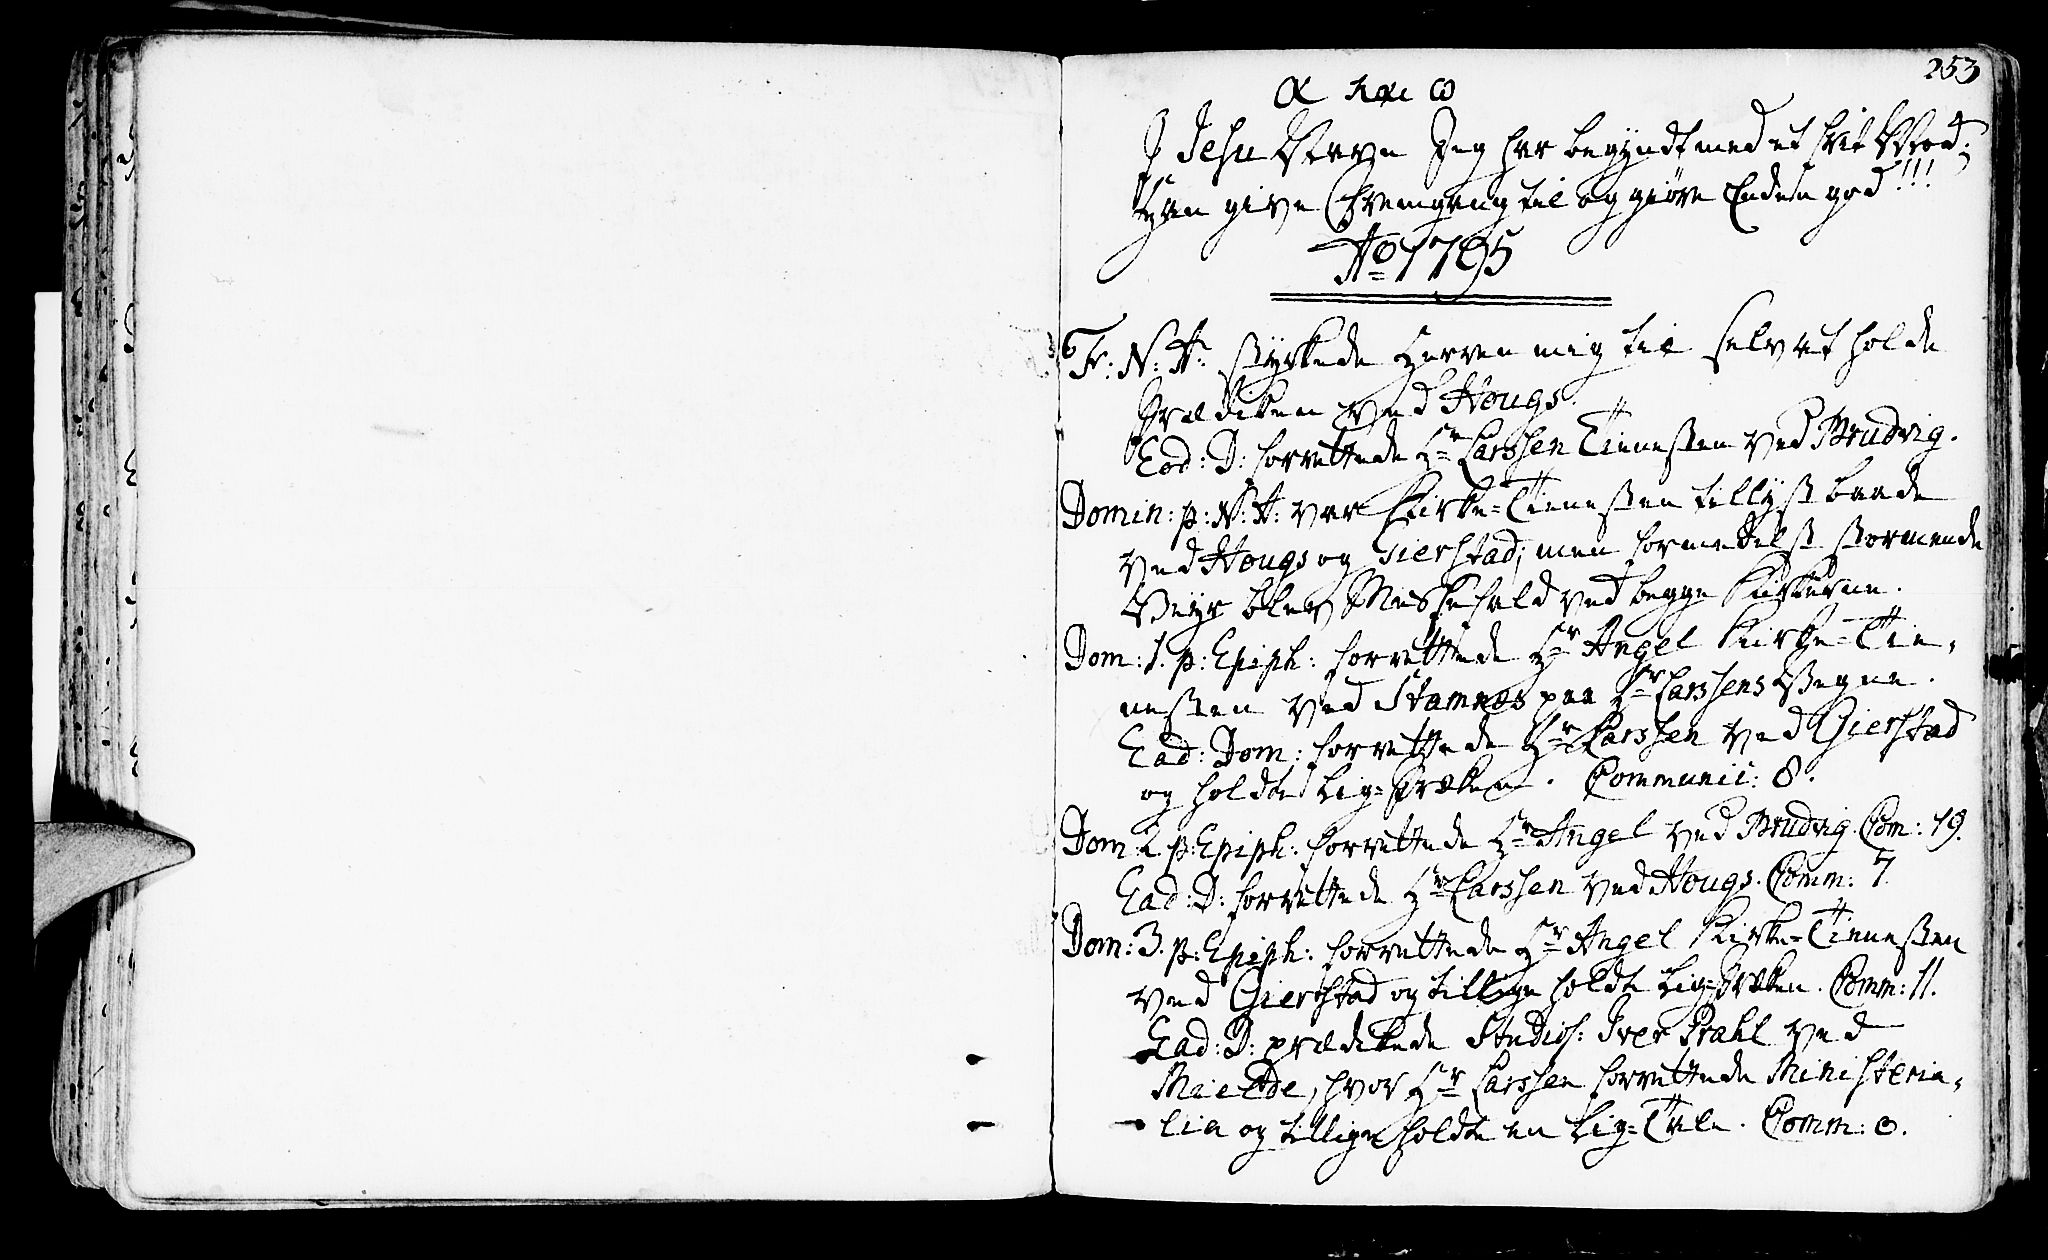 253
α και ω
J Jesu Navn Jeg har begyndt med et frit Mod;
Han give Fremgang til og giøre Enden god!!!
Ao 1795
Fr: N: A: styrkede Herren mig til selv at holde
Prædiken ved Hougs.
Eod: D: forrettede Hr Larssen Tienesten ved Brudvig.
Domin: p: N: A: var Kirke-Tienesten tillyst baade
ved Hougs og Gierstad; men formedelst stormende
Veyr blev Messefald ved begge Kirkerne.
Dom: 1. p: Epiph: forrettede Hr Angel Kirke-Tie-
nesten ved Stamnes paa Hr Larssens Vegne.
Ead: Dom: forrettede Hr Larssen ved Gierstad
og holdte Lig-Præken. Communic: 8.
Dom: 2. p: Epiph: forrettede Hr Angel ved Brudvig. Com: 19.
Ead: D: forrettede Hr Larssen ved Hougs. Comm: 7.
Dom: 3. p: Epiph: forrettede Hr Angel Kirke-Tienesten
ved Gierstad og tillige holdte Lig-Præken. Comm: 11.
Ead: D: prædikede Studios: Iver Prahl ved
, hvor Hr Larssen forrettede Ministeria-
lia og tillige holdte en Lig-Tale. Comm: 0.